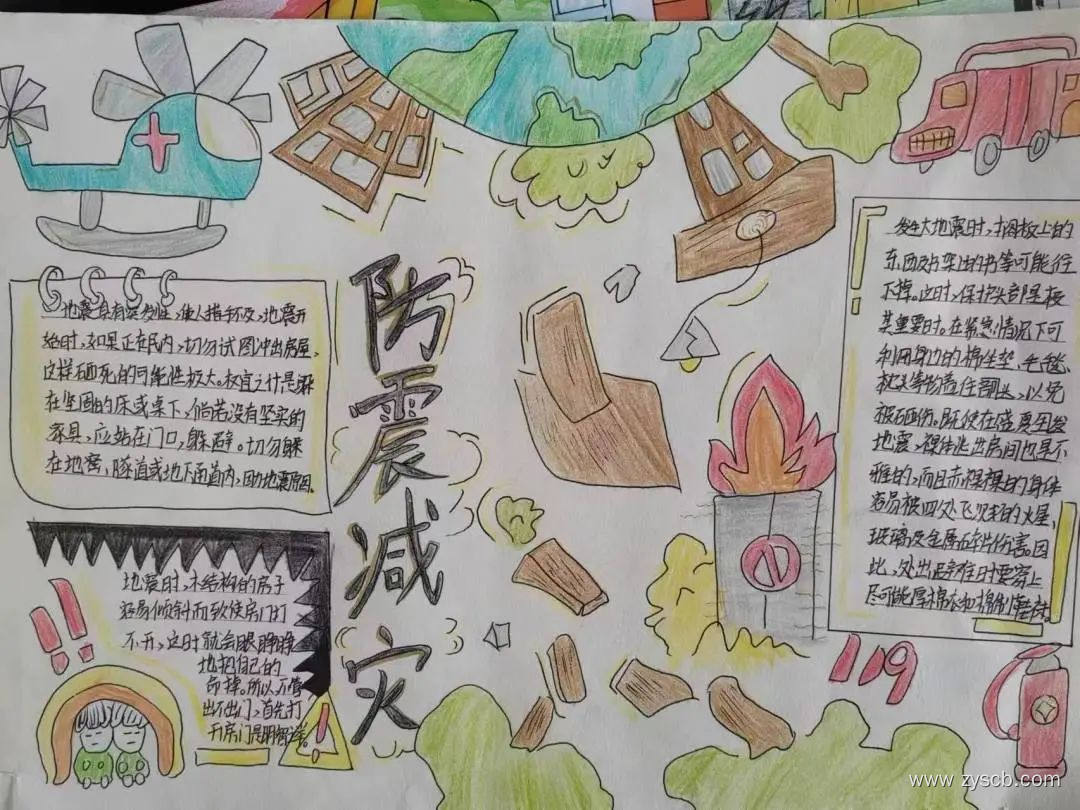 防震减灾
地震具有突发性,使人措手不及,地震开
始时,如果正在民内,切勿试图冲出房屋,
这样砸死的可能性极大。权宜之计是躲
在坚固的床或桌下,倘若没有坚实的
家具,应站在门口,躲避。切勿躲
在地窖,隧道或地下通道内,因地震原因。
地震时,木结构的房子
容易倾斜而致使房门打
不开,这时就会眼睁睁
地把自己的
命掉。所以不管
出不出门,首先打
开房门是明智之举。
发生大地震时,搁板上的
东西及书架上的书等可能往
下掉。这时,保护头部是极
其重要时。在紧急情况下可
利用身边的棉坐垫,毛毯,
枕头等物盖住头部,以免
被砸伤。既使在盛夏里发
地震,裸体逃出房间也是不
雅的,而且赤裸裸的身体
容易被四处飞溅的火星,
玻璃及金属碎片伤害。因
此,外出避难时要穿上
尽可能厚棉衣和棉制鞋袜。
119
www.zyscb.com